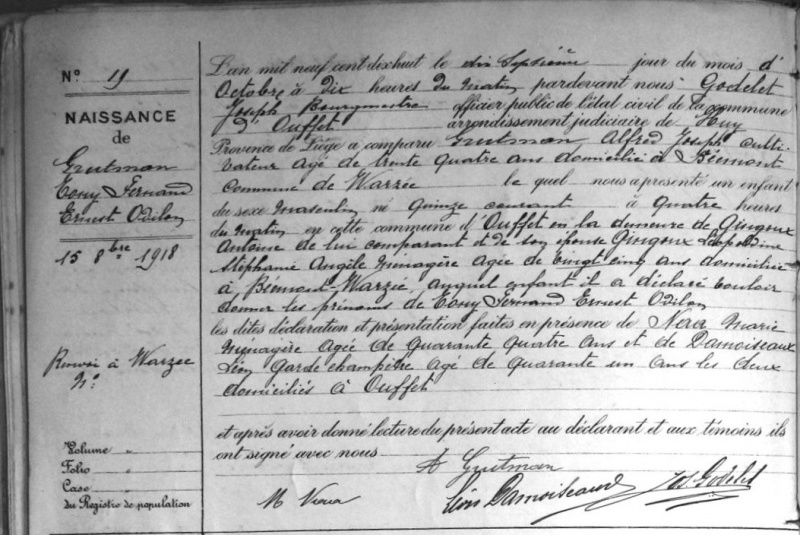 N° 19
NAISSANCE
de
Grutman
Tony Fernand
Ernest Odilon
15 8bre 1918
Renvoi à Warzée
N°
Volume "
Folio "
Case "
du Registre de population
L'an mil neuf cent dix huit le dix Septième jour du mois d'
Octobre à dix heures du Matin pardevant nous Godelet
Joseph Bourgmestre officier public de l'état civil de la commune
d'Ouffet arrondissement judiciaire de Huy
Province de Liège a comparu Grutman Alfred Joseph culti-
vateur agé de trente quatre ans domicilié à Bièmont
Commune de Warzée le quel nous a présenté un enfant
du sexe Masculin né quinze courant à quatre heures
du Matin en cette commune d'Ouffet en la demeure de Gingoux
Antoine de lui comparant et de son épouse Gingoux Léopoldine
Stéphanie Angèle Ménagère agée de vingt cinq ans domiciliée
à Bièmont-Warzée, auquel enfant il a déclaré vouloir
donner les prénoms de Tony Fernand Ernest Odilon
les dites déclaration et présentation faites en présence de Marie
Ménagère agée de quarante quatre ans et de Damoiseaux
Léon Garde champêtre agé de quarante un ans les deux
domiciliés à Ouffet
et après avoir donné lecture du présent acte au déclarant et aux témoins ils
ont signé avec nous
A Grutman
M Léon Damoiseaux Jos. Godelet